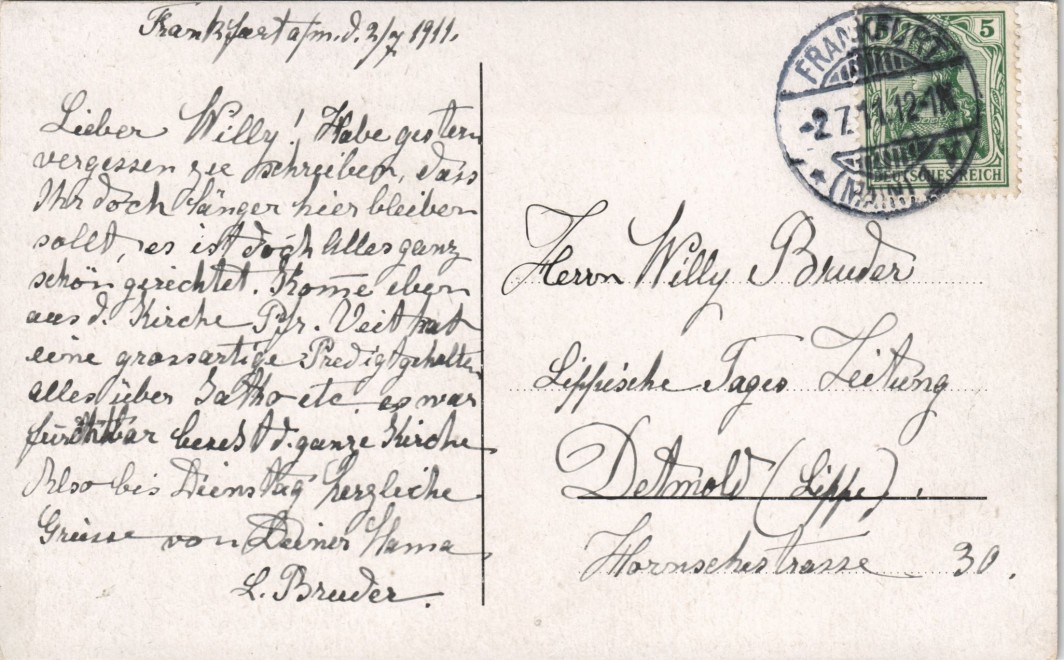 Frankfurt a/m. d. 2/7 1911.
Lieber Willy! Habe gestern
vergessen zu schreiben, dass
Ihr doch länger hier bleiben
sollt, es ist doch Alles ganz
schön gerichtet. Kom̄e eben
aus d. Kirche Pfr. Veit hat
eine grossartige Predigt gehalten
alles über Jatho etc. es war
furchtbar besetzt d. ganze Kirche
Also bis Dienstag herzliche
Grüsse von Deiner Mama
L. Bruder.
FRANKFURT
-2.7.11.12-1N
* (MAIN)
5
DEUTSCHES REICH
Herrn Willy Bruder
Lippische Tages Zeitung
Detmold (Lippe).
Hornschestrasse 30.